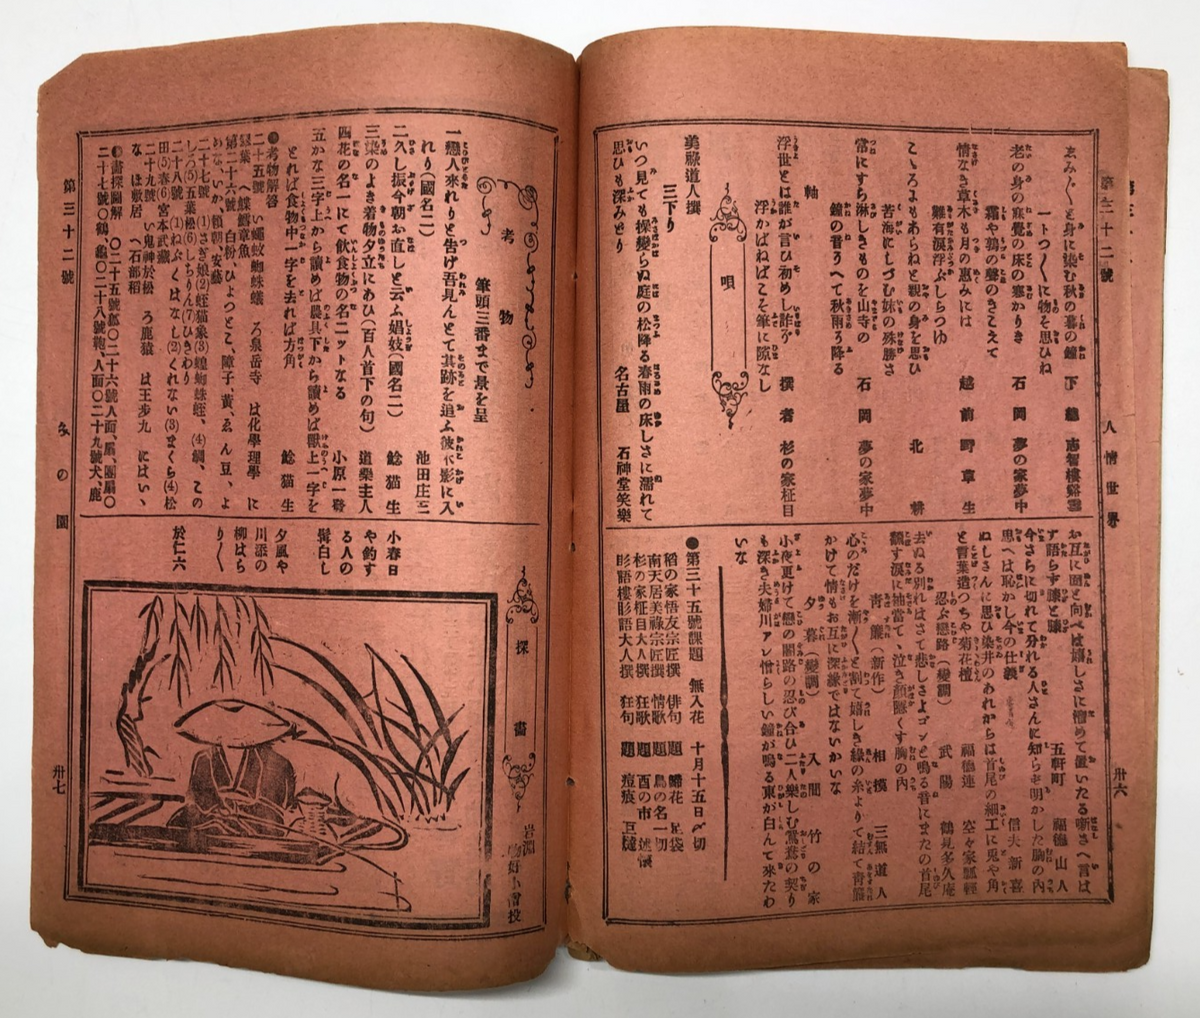 第三十二號
人情世界
卅六
ゑみ〴〵と身に染む秋の暮の鐘
一トつ〳〵に物を思ひね
老の身の寐覺の床の寒かりき 石岡 夢の家夢中
霜や鶉の聲のきこえて
情なき草木も月の惠みには 越前 野草生
難有涙浮ぶしらつゆ
こゝろよもあらねど親の身を思ひ 北耕
苦海にしづむ妹の殊勝さ
常にすら淋しきものを山寺の 石岡 夢の家夢中
鐘の音うへて秋雨う降る
軸
浮世とは誰が言ひ初めし詐う 撰者 杉の家柾目
浮かばねばこそ筆に隙なし
唄
美祿道人撰
三下り
いつ見ても操變らぬ庭の松降る春雨の床しさに濡れて
思ひも深みどり 名古屋 石神堂笑樂
お互に面と向へば嬉しさに溜めて置いたる噺さへ言は
ず語らず
五軒町 福德山人
今さらに切れて分れる人さんに知らも明かした胸の內
思へは恥かし今の仕義 信夫新喜
ぬしさんに思ひ染井のあれからは首尾の細工に兎や角
と言葉造つちや菊花壇 福德連 空々家瓢輕
忍ぶ戀路(變調) 武陽 鶴見多久庵
去ぬる別れはさて悲しさよゴンと鳴る音にまたの首尾
翻す涙に袖當て、泣き顏隱くす胸の內
靑簾(新作) 相摸 三無道人
心のだけを漸〳〵と割て嬉しき緣の糸より結て靑簾
かけて情もお互に深緣ではないかいな
夕暮(變調) 入間 竹の家
小夜更けて戀の關路の忍び合ひ二人樂しむ鴛鴦の契り
も深き夫婦川アレ憎らしい鐘が鳴る東が白んて來たわ
いな
●第三十五號課題 無入花 十月十五日〆切
稻の家悟友宗匠撰 俳句 題 歸花 足袋
南天居美祿宗匠撰 情歌 題 鳥の名一切
杉の家柾目大人撰 狂歌 題 酉の市 述懷
彫語樓彫語大人撰 狂句 題 痘痕 巨燵
考物
筆頭三番まで景を呈
一戀人來れりと告げ吾見んとて其跡を追ふ彼不影に入
れり(國名二) 池田庄三
二久し振今朝お直しと云ふ娼妓(國名二) 鯰猫生
三染のよき着物夕立にあひ(百人首下の句) 道樂主人
四花の名一にて飲食物の名二ットなる 小原一醉
五かな三字上から讀めば農具下から讀めば獸上一字を
とれば食物中一字を去れば方角 鯰猫生
●考物解答
二十五號 い蠅蚊蜘蛛蟻 ろ泉岳寺 は化學理學 に
雲葉 へ鰈章魚
第二十六號 白粉、ひょつとこ、障子、黃、ゑん豆、よ
めな、いか、賴朝、安藝
二十七號 (1)さぎ娘(2)蛭猫象(3)蝗蜘蛛蛭、(4)綱、この
しろ(5)五葉松(6)しちりん(7)ひきわり
二十八號 (1)ねぶくはなし(2)くれない(3)まくら(4)松
田(5)春(6)宮本武藏
二十九號 い鬼神於松 ろ鹿猿 は王步九 にはいゝ
な ほ敷居 へ石部稻
●畵探圖解 〇二十五號瓢〇二十六號人面、扇、團扇〇
二十七號〇鶴、龜〇二十八號鞄、人面〇二十九號犬、鹿
探畵
岩淵 物好小僧投
小春日
や釣す
る人の
髯白し
夕風や
川添の
柳はら
り〳〵
於仁六
第三十二號
文の園
卅七